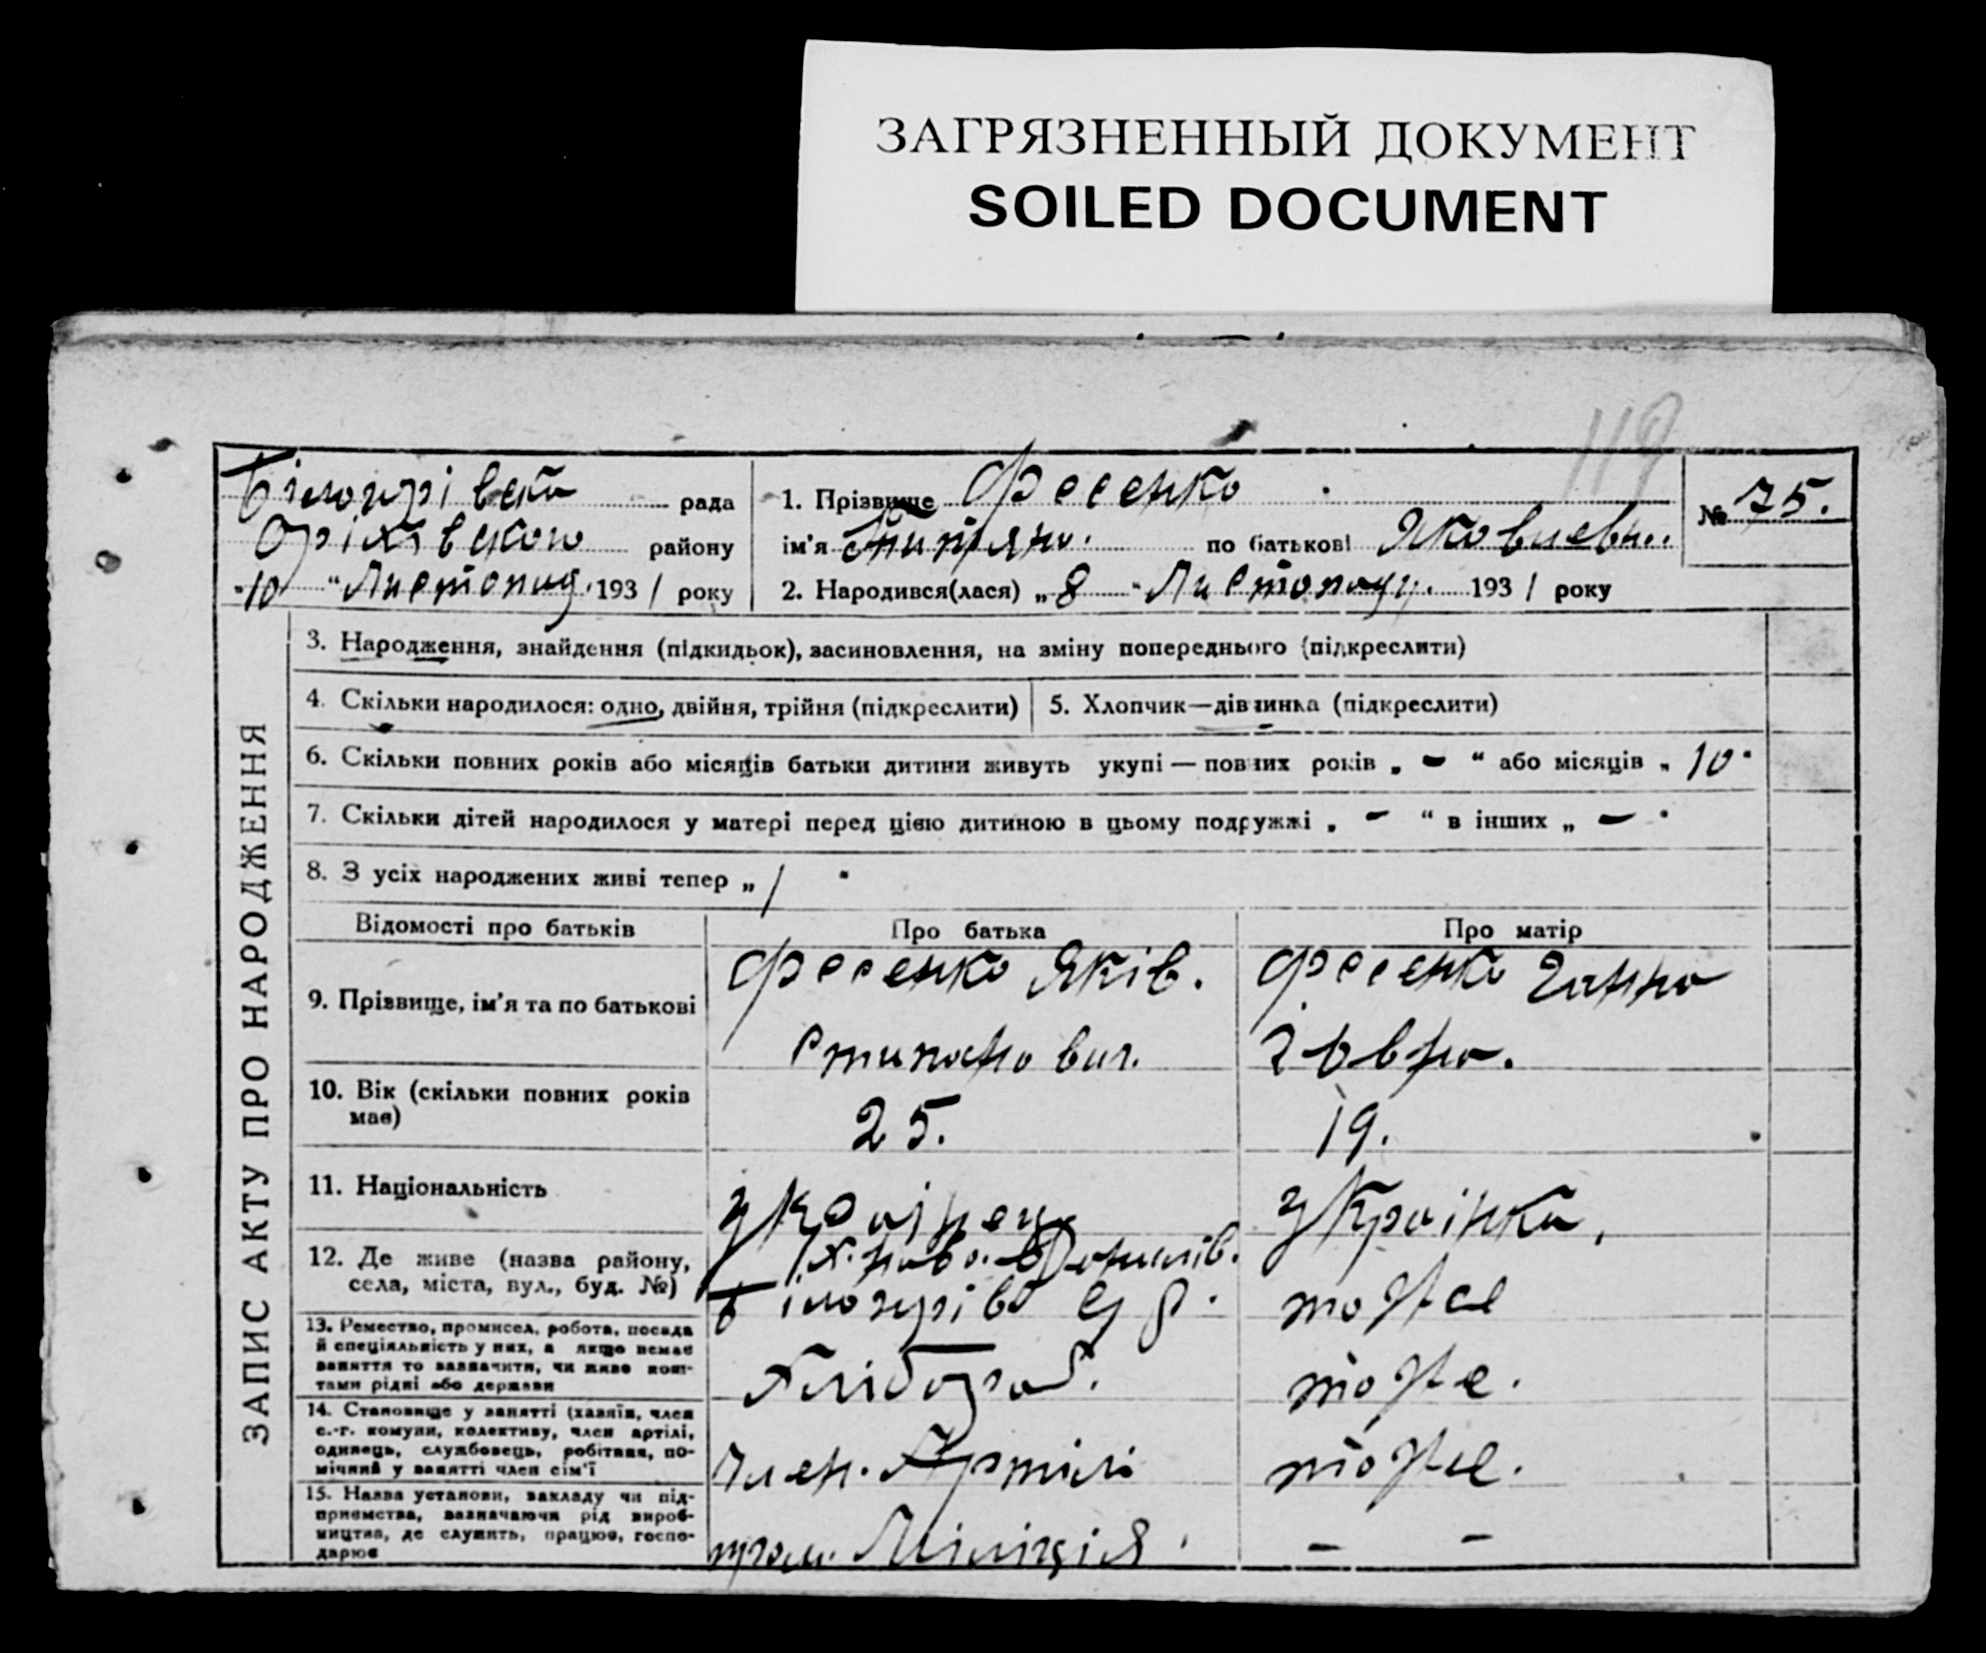 ЗАГРЯЗНЕННЫЙ ДОКУМЕНТ
SOILED DOCUMENT
119
Білогірівска рада
Оріхівского району
"10" Листопад. 1931 року
1. Прізвище Фесенко
ім'я Титяно. по батькові Яковлевн..
2. Народився(лася) „8" Листопаду. 1931 року
№ 75.
ЗАПИС АКТУ ПРО НАРОДЖЕННЯ
3. Народження, знайдення (підкидьок), засиновлення, на зміну попереднього (підкреслити)
4. Скільки народилося: одно, двійня, трійня (підкреслити)
5. Хлопчик—дівчинка (підкреслити)
6. Скільки повних років або місяців батьки дитини живуть укупі — повних років „ - “ або місяців „ 10 "
7. Скільки дітей народилося у матері перед цією дитиною в цьому подружжі „ - “ в інших „ - "
8. З усіх народжених живі тепер „ 1 "
Відомості про батьків Про батька Про матір
9. Прізвище, ім'я та по батькові
Фесенко Яків.
Стипано вич.
Фесенко Ганна
10. Вік (скільки повних років має)
25.
19.
11. Національність
Українец
Українка.
12. Де живе (назва району,
села, міста, вул., буд. №)
тоже
13. Ремество, промисел, робота, посада
й спеціяльність у них, а якщо немає
заняття то зазначити, чи живе кош-
тами рідні або держави
Хлібороб.
тоже.
14. Становище у занятті (хазяїн, член
с.-г. комуни, колективу, член артілі,
одинець, службовець, робітник, по-
мічний у занятті член сім'ї
член. Артілі
тоже.
15. Назва установи, закладу чи під-
приємства, зазначаючи рід вироб-
ництва, де служить, працює, госпо-
дарює
Міліція
- -